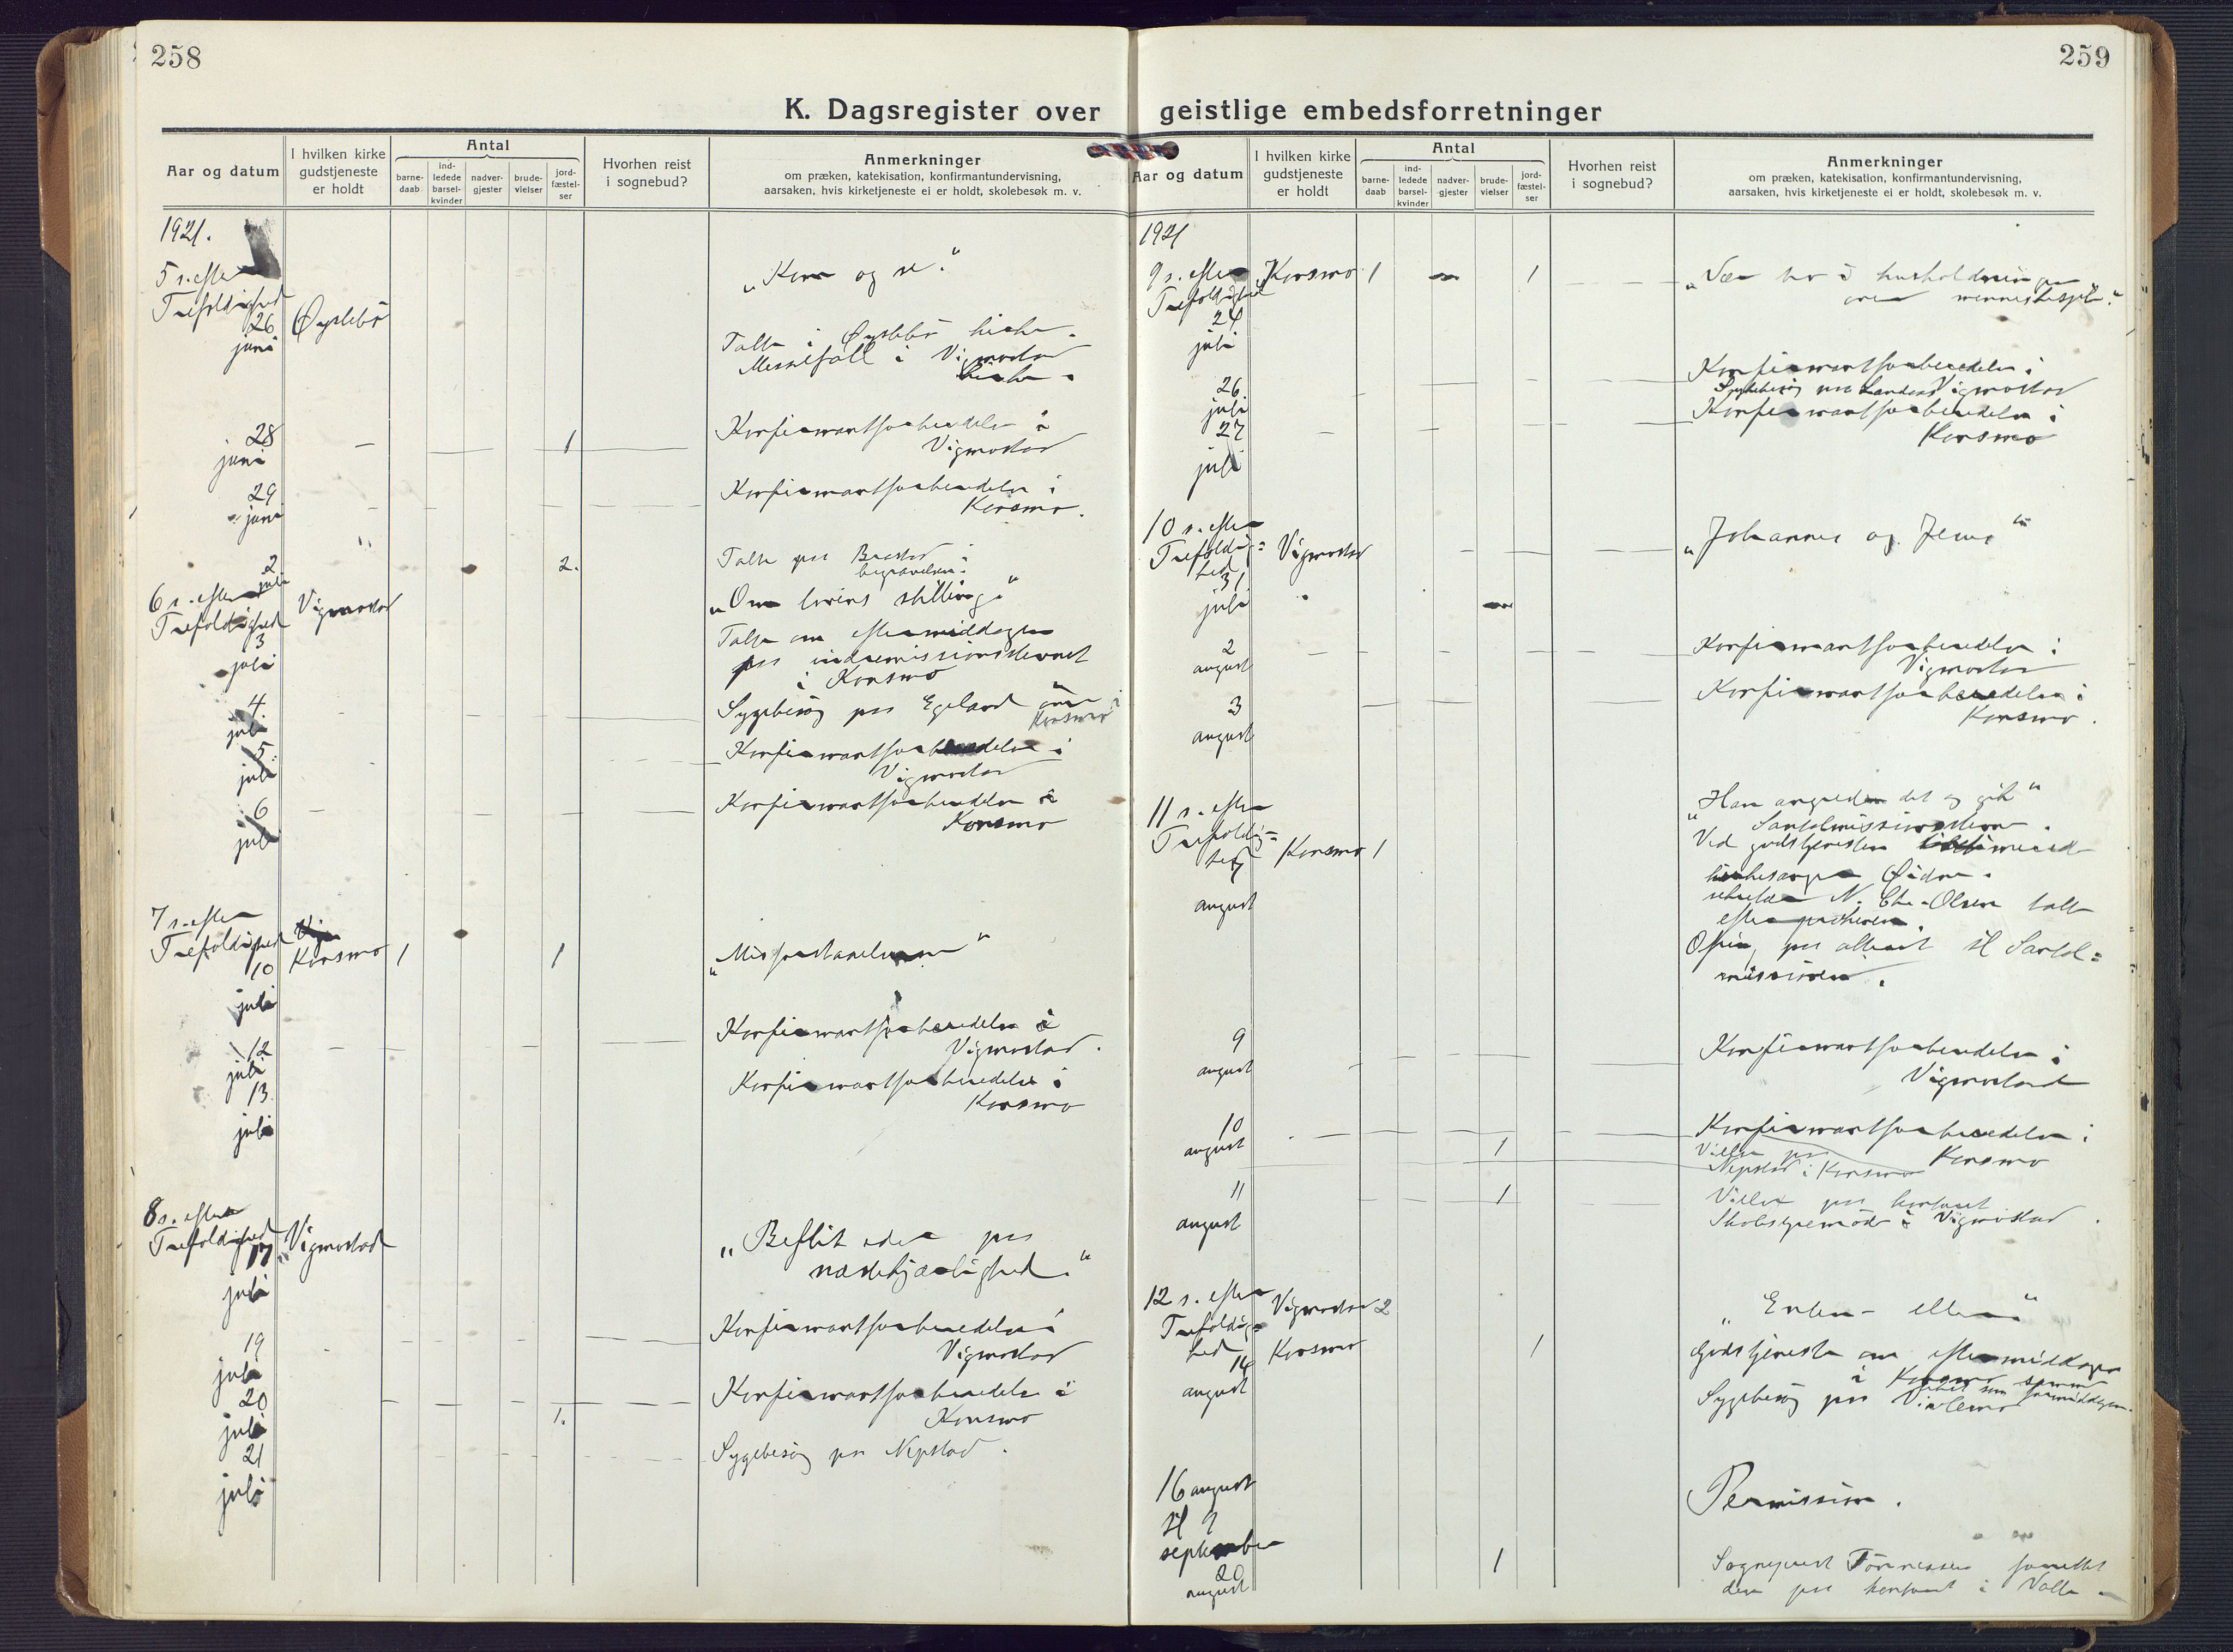 258
K. Dagsregister over
Aar og datum
I hvilken kirke
gudstjeneste
er holdt
Antal
barne-
daab
ind-
ledede
barsel-
kvinder
nadver-
gjester
brude-
vielser
jord-
fæstel-
ser
Hvorhen reist
i sognebud?
Anmerkninger
om præken, katekisation, konfirmantundervisning,
aarsaken, hvis kirketjeneste ei er holdt, skolebesøk m. v.
1921.
5 s. efter
Trefoldighed
26 Øyslebø
juni
„Kom og se."
Talte i Øyslebø kirke.
Messefall i Vigmostad
kirke.
28
juni
— 1
Konfirmantforberedelse i
Vigmostad
29
juni
Konfirmantforberedelse i
Konsmo.
2
juli
2.
Talte paa
begravelse.
6 s. efter
Trefoldighed Vigmostad
3
juli
„Om livets stilling"
Talte om eftermiddagen
paa indremissionsstevnet
i Konsmo
4.
juli
Sygebesøg paa Egeland i
Konsmo
5.
juli
Konfirmantforberedelse i
Vigmostad
6
juli
Konfirmantforberedelse i
Konsmo
7 s. efter
Trefoldighed
10 Konsmo 1 1
juli
12
juli
Konfirmantforberedelse i
Vigmostad.
13
juli
Konfirmantforberedelse i
Konsmo
8 s. efter
Trefoldighed
17 Vigmostad
juli
„Beflit eder paa
næstekjærlighed."
19
juli
Konfirmantforberedelse i
Vigmostad
20
juli
1.
Konfirmantforberedelse i
Konsmo
21
juli
Sygebesøg paa Nepstad.
259
geistlige embedsforretninger
Aar og datum
I hvilken kirke
gudstjeneste
er holdt
Antal
barne-
daab
ind-
ledede
barsel-
kvinder
nadver-
gjester
brude-
vielser
jord-
fæstel-
ser
Hvorhen reist
i sognebud?
Anmerkninger
om præken, katekisation, konfirmantundervisning,
aarsaken, hvis kirketjeneste ei er holdt, skolebesøk m. v.
1921
9 s. efter Konsmo 1 1
Trefoldighed
24
juli
26
juli
Konfirmantforberedelse i
Sygebesøg paa Vigmostad
27
juli
Konfirmantforberedelse i
Konsmo
10 s. efter
Trefoldig=
hed Vigmostad
31
juli
„Johannes og Jesus"
2
august
Konfirmantforberedelse i
Vigmostad
3
august
Konfirmantforberedelse i
Konsmo.
11 s. efter
Trefoldig=
hed Konsmo 1
7
august
„Han angrede det og gik"
Santalmissionsstevne.
Ved gudstjenesten
N. Chr. Olsen talte
efter prækenen.
Ofring paa alteret til Santal=
missionen.
9
august
Konfirmantforberedelse i
Vigmostad
10
august
1
Konfirmantforberedelse i
Konsmo
Vielse paa
Nepstad i Konsmo
11
august
1
Vielse paa kontoret
Skolestyremøde i Vigmostad
12 s. efter
Trefoldig=
hed
14
august
Vigmostad 2
Konsmo 1
„Enten – eller"
Gudstjeneste om eftermiddagen
i Konsmo
Sygebesøg paa
16 august
til 9
september
Permission.
20
august
1
Sogneprest Tønnessen forrettet
den paa kontoret i Valle.